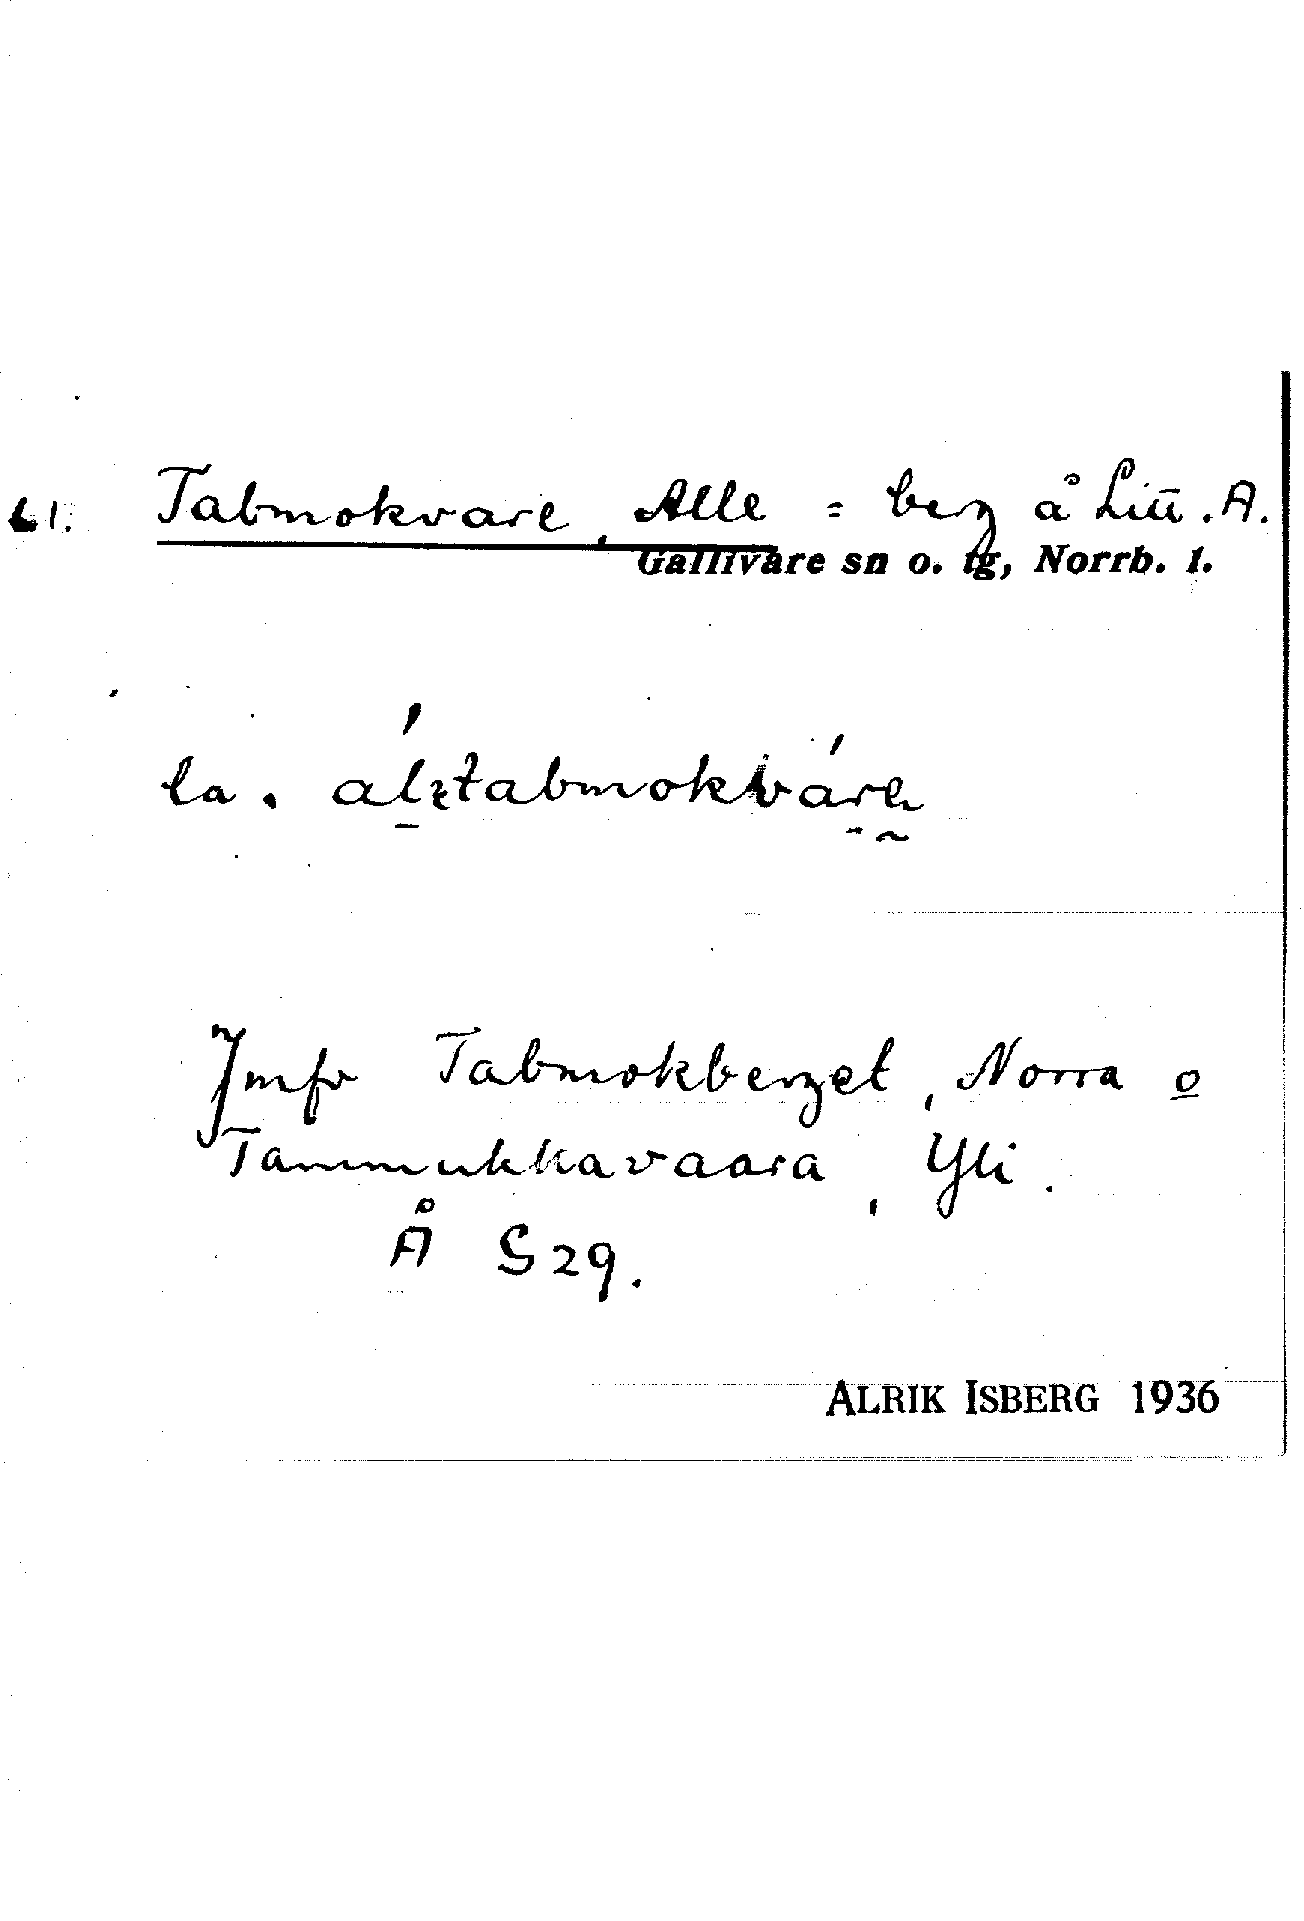 61. Tabmokvare, Alle = berg å Litt. A.
Gällivare sn o. tg, Norrb. l.
la. álɛtabmokvárɛ
Jmfr Tabmokberget, Norra o
Tammukkavaara, Yli.
Å S 29.
ALRIK ISBERG 1936